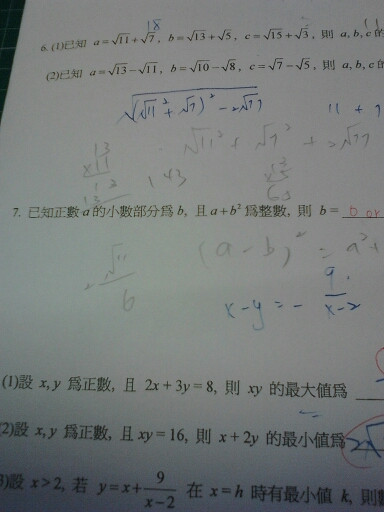 18
6. (1)已知 a=√11+√7, b=√13+√5, c=√15+√3, 則 a, b, c的
(2)已知 a=√13−√11, b=√10−√8, c=√7−√5, 則 a, b, c
11 + 7
√11² + √7² + 2√77
143
7. 已知正數 a 的小數部分爲 b, 且 a+b² 爲整數, 則 b= 0 or
(a − b)² = a² +
√11
6
9
x−y = − x−2
(1)設 x, y 爲正數, 且 2x+3y=8, 則 xy 的最大值爲
(2)設 x, y 爲正數, 且 xy=16, 則 x+2y 的最小值爲
3)設 x>2, 若 y=x+9/(x−2) 在 x=h 時有最小值 k, 則